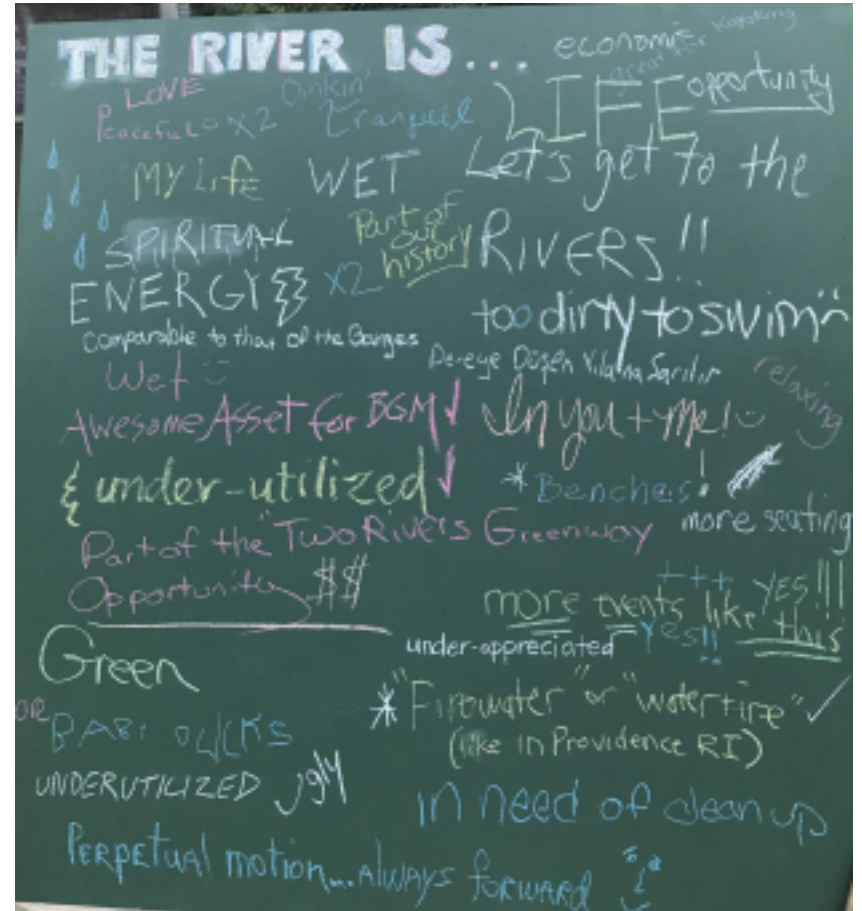 THE RIVER IS...
economic
great for kayaking
LOVE
Peaceful x2
Drinkin'
tranquil
LIFE
opportunity
MY Life
WET
Let's get to the
RIVERS!!
SPIRITUAL
Part of
our
history
ENERGY x2
too dirty to swim
comparable to that of the Ganges
Dereye Düşen Yılana Sarılır
Wet
relaxing
Awesome Asset for BGM
In you + me!
& under-utilized
* Benches!
more seating
Part of the "Two Rivers Greenway
Opportunity $$
+++ YES!!!
more events like this
yes!!
under-appreciated
Green
* "Firewater" or "waterfire"
(like in Providence RI)
OR
BABI DUCKS
UNDERUTILIZED ugly
in need of clean up
PERPETUAL motion...ALWAYS forward